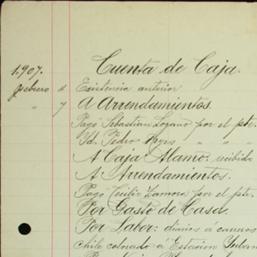 Cuenta de Caja.
1.907.
febrero 1 Existencia anterior
" 7 A Arrendamientos.
Pagó Sebastian Lozano por el pte.
Id. Pedro Reyes " " "
A Caja Alamo: recibido
A Arrendamientos.
Pagó Cecilio Zamora por el pte.
Por Gasto de Casa.
Por Labor: diarios á
chile colorado á Estacion